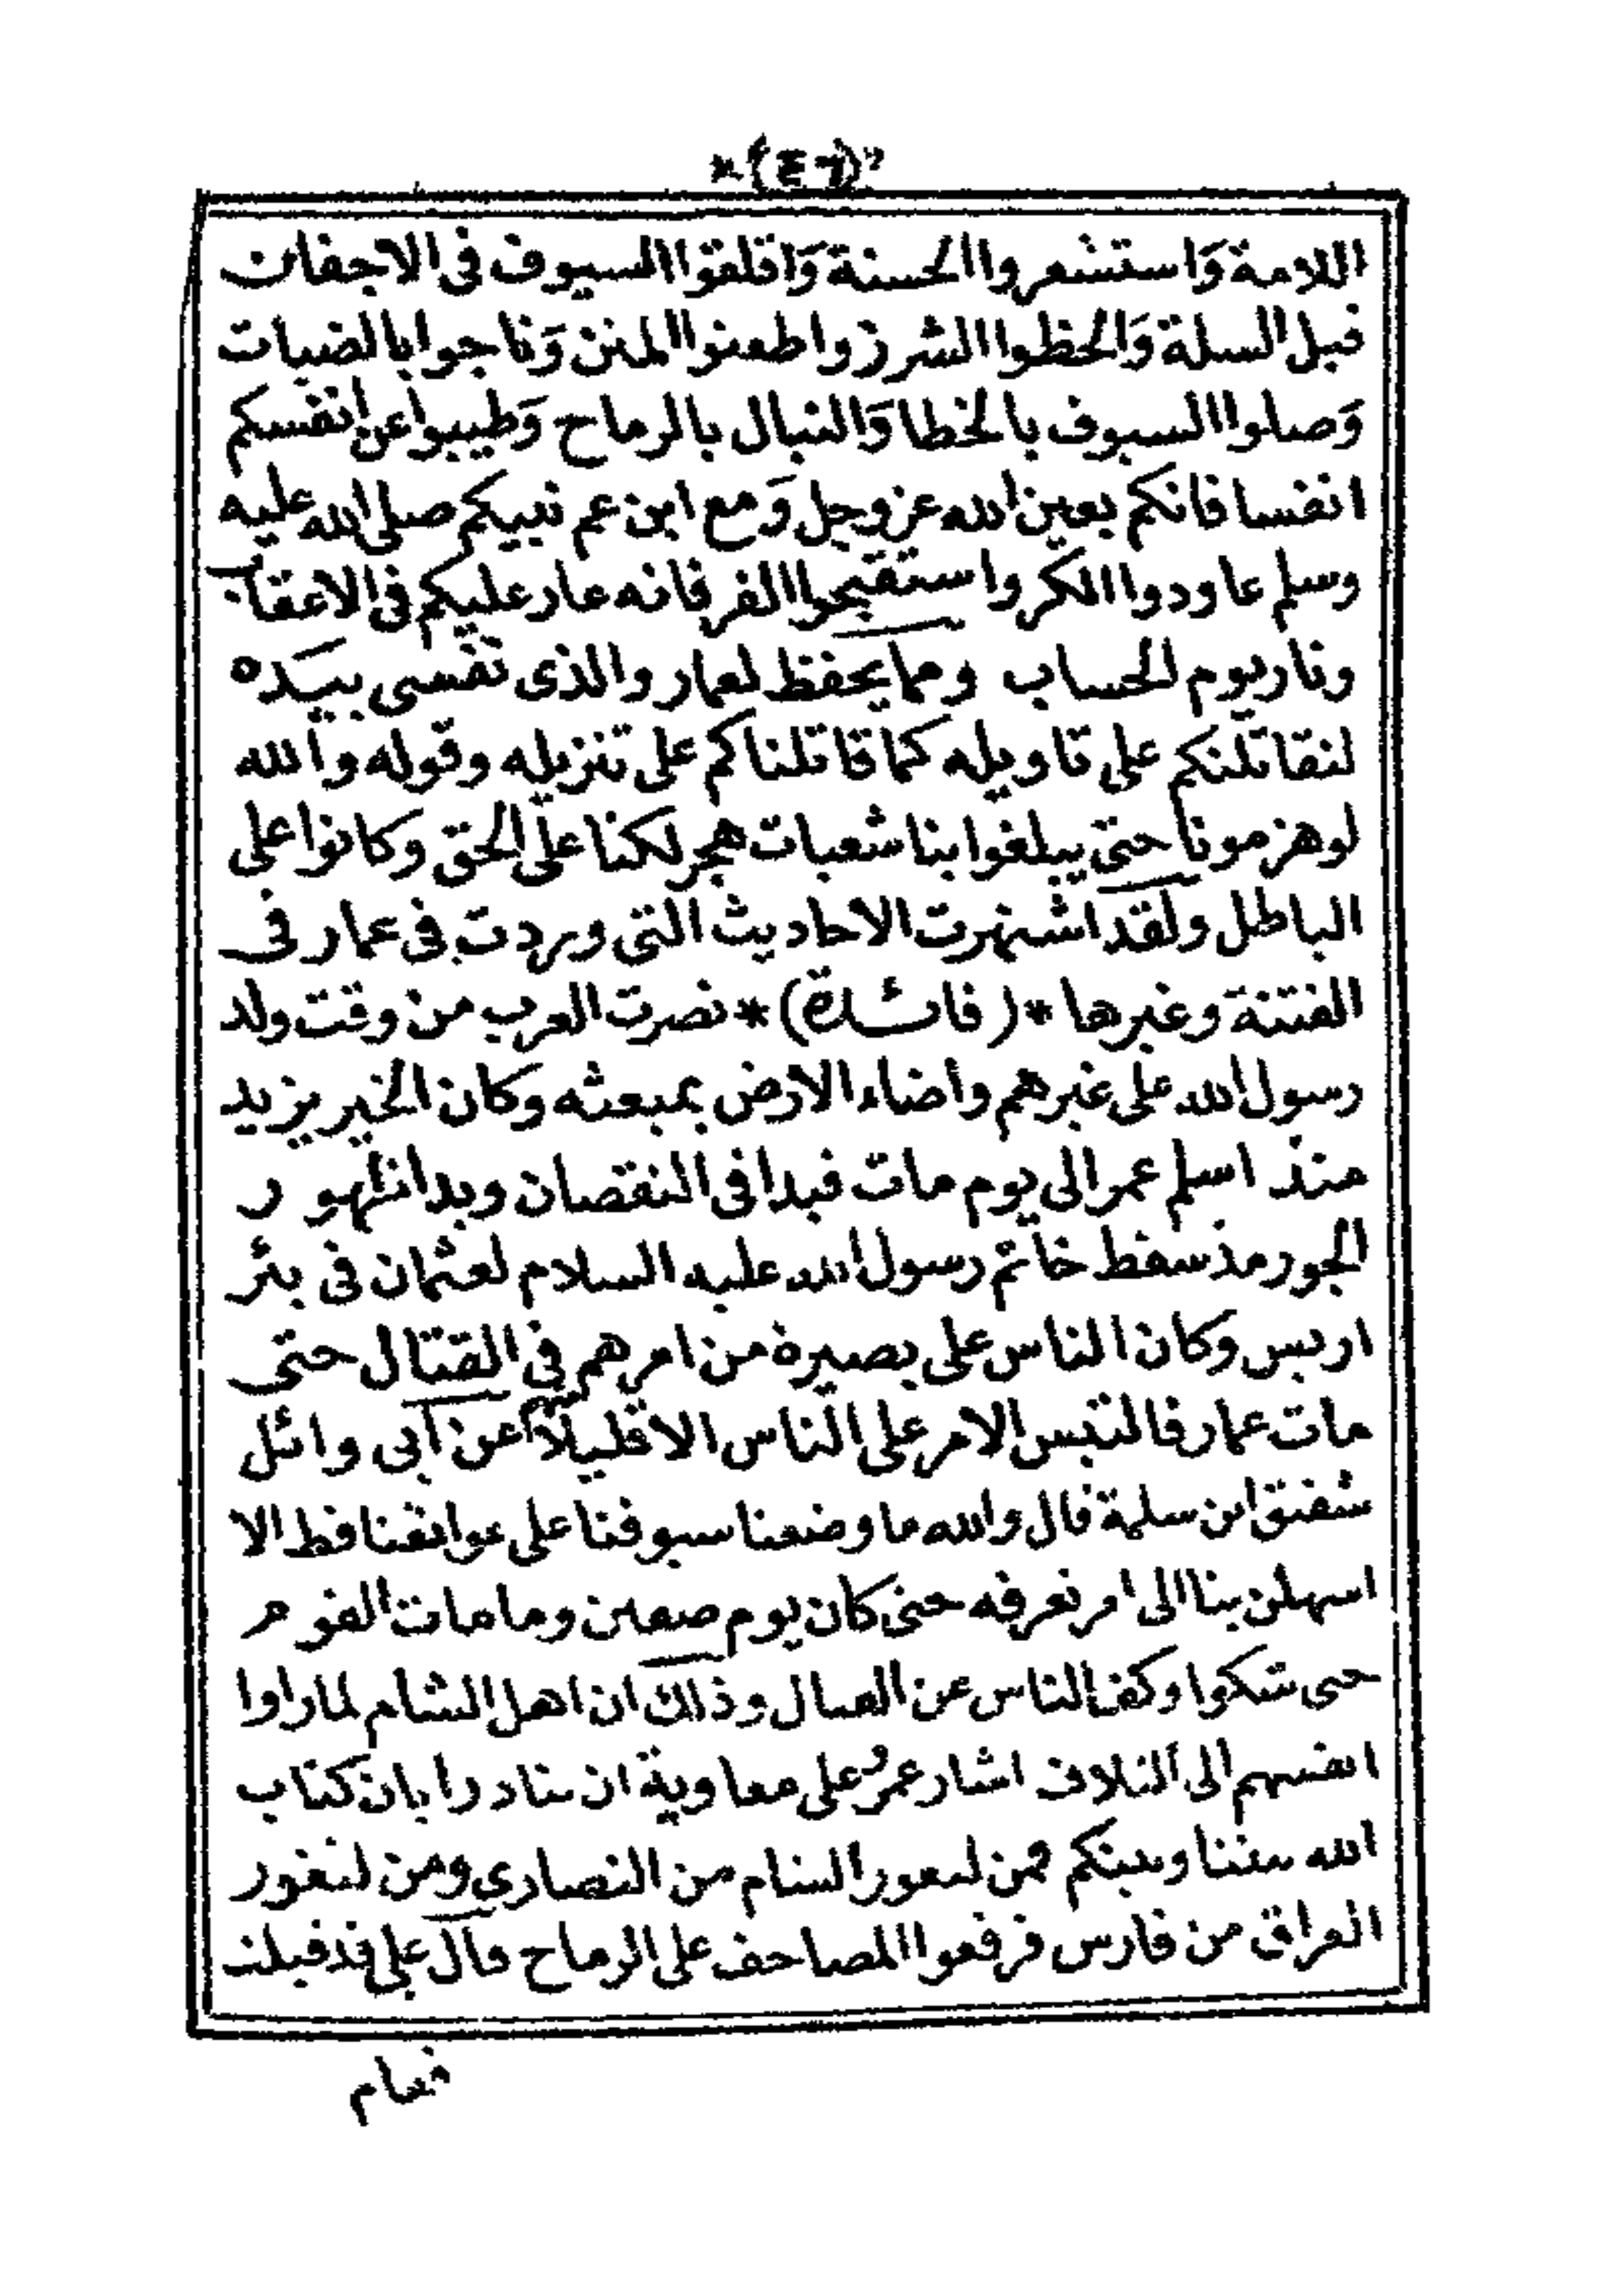 *(٤٦)*
اللامة وَاستشعروا الحسنة وَاقلقوا السيوف فى الاجفان
قبل السلة وَالحظوا الشرز واطعنوا المنن وَناجوا بالضبات
وَصلوا السيوف بالخطا وَالنبال بالرماح وَطيبوا عن انفسكم
انفسا فانكم بعين الله عز وجل وَمع ابن عم نبيكم صلى الله عليه
وسلم عاودوا الكر واستقبحوا الفر فانه عار عليكم فى الاعقاب
ونار يوم الحساب ومما يحفظ لعمار والذى نفسى بيده
لنقاتلنكم على تاويله كما قاتلناكم على تنزيله وقوله والله
لوهزمونا حتى يبلغوا بنا شعبات هجر لكنا على الحق وكانوا على
الباطل ولقد اشتهرت الاحاديث التى وردت فى عمار فى
الفتنة وغيرها *(فائدة)* نصرت العرب من وقت ولد
رسول الله على غيرهم واضاء الارض بمبعثه وكان الخير يزيد
منذ اسلم عمر الى يوم مات فبدا فى النقصان وبدا ظهور
الجور مذ سقط خاتم رسول الله عليه السلام لعثمان فى بئر
اريس وكان الناس على بصيرة من امرهم فى القتال حتى
مات عمار فالتبس الامر على الناس الا قليلا عن ابى وائل
شقيق ابن سلمة قال والله ما وضعنا سيوفنا على عواتقنا قط الا
اسهلن بنا الى امر نعرفه حتى كان يوم صفين وما مات القوم
حتى شكوا وكف الناس عن القتال وذلك ان اهل الشام لما راوا
انفسهم الى التلاف اشار عمرو على معاوية ان ينادرا بان كتاب
الله بيننا وبينكم فمن لثغور الشام من النصارى ومن لثغور
العراق من فارس فرفعوا المصاحف على الرماح قال على قد قبلت
فقام